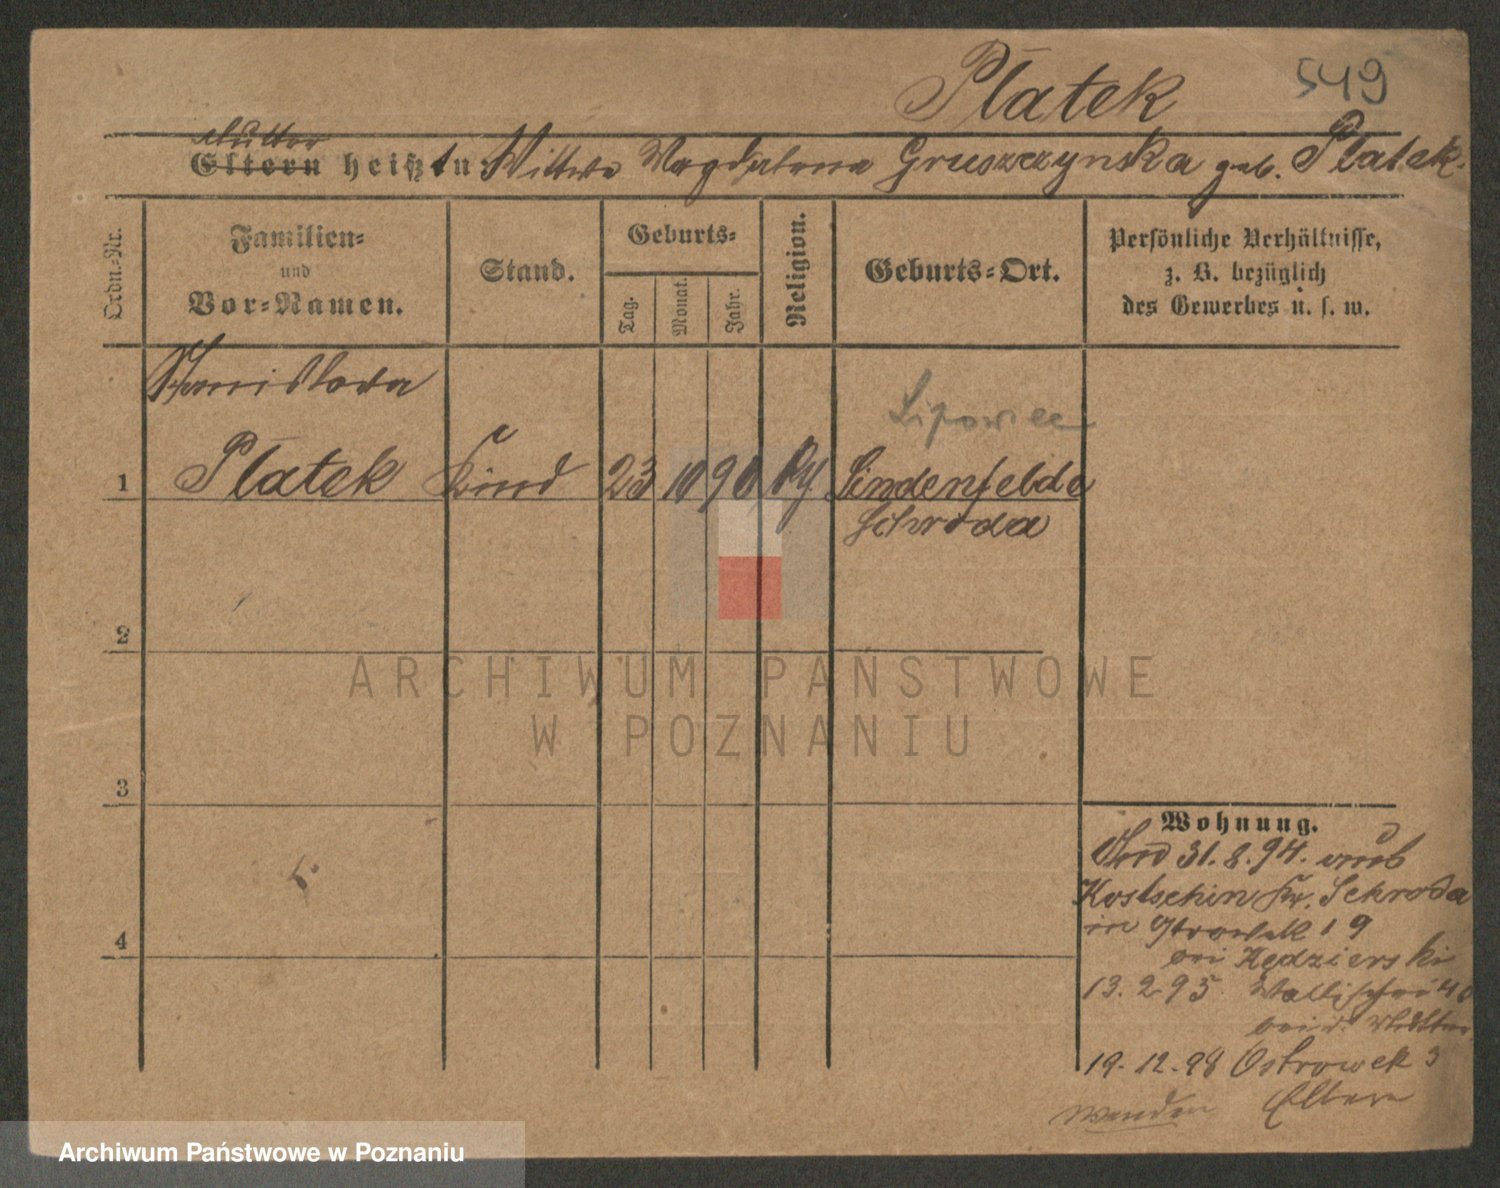 Płatek 549
Mutter
Eltern heißt en: Wittwe Magdalena Gruszczynska geb. Płatek.
Ordn.-Nr.
Familien-
und
Vor-Namen.
Stand.
Geburts-
Tag.
Monat.
Jahr.
Religion.
Geburts-Ort.
Persönliche Verhältnisse,
z. B. bezüglich
des Gewerbes u. s. w.
Stanislawa
Lipowiec
1 Płatek Kind 23 10 90 Lindenfelde
Schroda
2
ARCHIWUM PAŃSTWOWE
W POZNANIU
3
Wohnung.
31.8.94. aus
Kostschin Kr. Schroda
in Ostrowek 19
bei Kędzierski
4
13.2.95 Wallischei 40
bei d. Mutter
19.12.98 Ostrowek 3
wenden Eltern
Archiwum Państwowe w Poznaniu